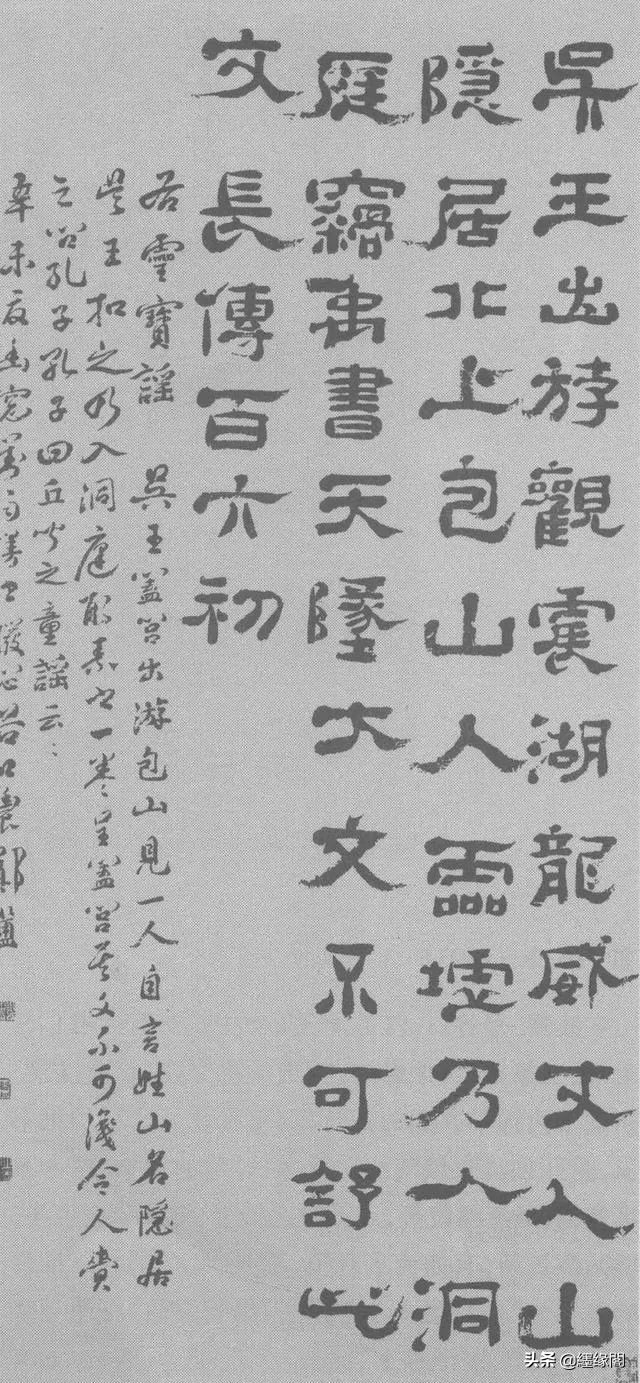 吳王出游觀震湖龍威丈人山
隱居北上包山人靈墟乃入洞
庭竊禹書天墬大文不可舒此
文長傳百六初
右靈寶謠 吳王闔閭出游包山見一人自言姓山名隱居
吳王扣之乃入洞庭取素書一卷呈闔閭其文不可識令人賫
之問孔子孔子曰丘聞之童謠云云
辛未夏 谷口農鄭簠
头条